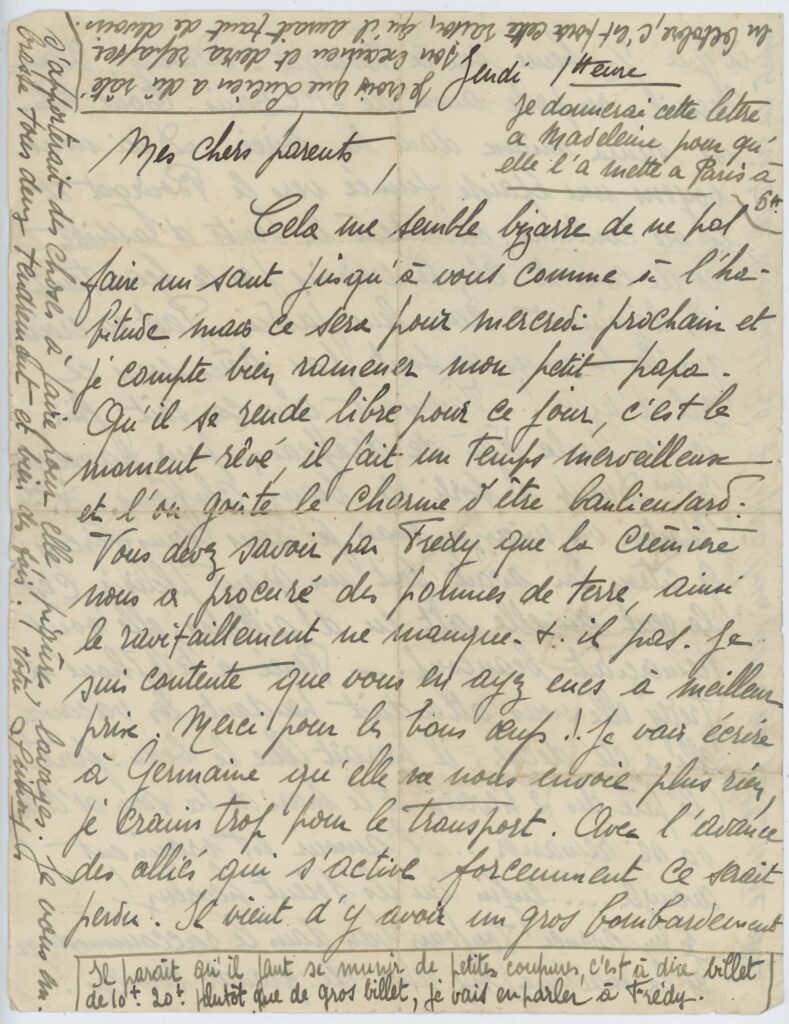 Jeudi 1 Heure
je donnerai cette lettre
a Madeleine pour qu'
elle l'a mette a Paris à
5H.
Mes chers parents,
Cela me semble bizarre de ne pas
faire un saut jusqu'à vous comme à l'ha-
bitude mais ce sera pour mercredi prochain et
je compte bien ramener mon petit papa.
Qu'il se rende libre pour ce jour, c'est le
moment rêvé, il fait un temps merveilleux
et l'on goûte le charme d'être banlieusard.
Vous devez savoir par Frédy que la crémière
nous a procuré des pommes de terre, ainsi
le ravitaillement ne manque-t-il pas. Je
suis contente que vous en ayez eues à meilleur
prix. Merci pour les bons œufs !. Je vais écrire
à Germaine qu'elle ne nous envoie plus rien,
je crains trop pour le transport. Avec l'avance
des alliés qui s'active forcemment ce serait
perdu. Il vient d'y avoir un gros bombardement
Il parait qu'il faut se munir de petites coupures, c'est à dire billet
de 10f. 20f. plutôt que de gros billet, je vais en parler à Frédy.
Je crois que Lucien a dû raté
son examen et devra repasser
en Octobre, c'est pour cette raison, qu'il aurait tant de devoirs.
d'apporterait des choses à faire pour elle, piqûres, lavages. Je vous em-
brasse tous deux tendrement et bien des fois. Votre